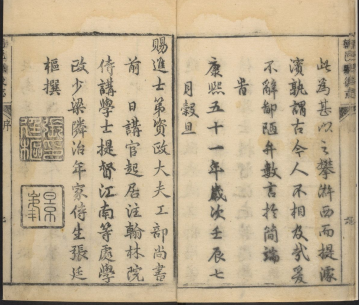 此為甚以之攀淵西而提濂
濱孰謂古今人不相及哉爰
不辭鄙陋弁數言於簡端
旹
康熙五十一年歲次壬辰七
月穀旦
賜進士第資政大夫工部尚書
前日講官起居注翰林院
侍講學士提督江南等處學
政少梁隣治年家侍生張廷
樞撰
張印廷樞
序